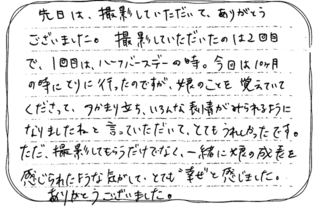 先日は、撮影していただいて、ありがとう
ございました。 撮影していただいたのは2回目
で、1回目は、ハーフバースデーの時。今回は10ヶ月
の時にとりに行ったのですが、娘のことを覚えていて
くださって、つかまり立ち、いろんな表情がみられるように
なりましたねと言っていただいて、とてもうれしかったです。
ただ、撮影してもらうだけでなく、一緒に娘の成長を
感じられたような気がして、とても"幸せ"と感じました。
ありがとうございました。